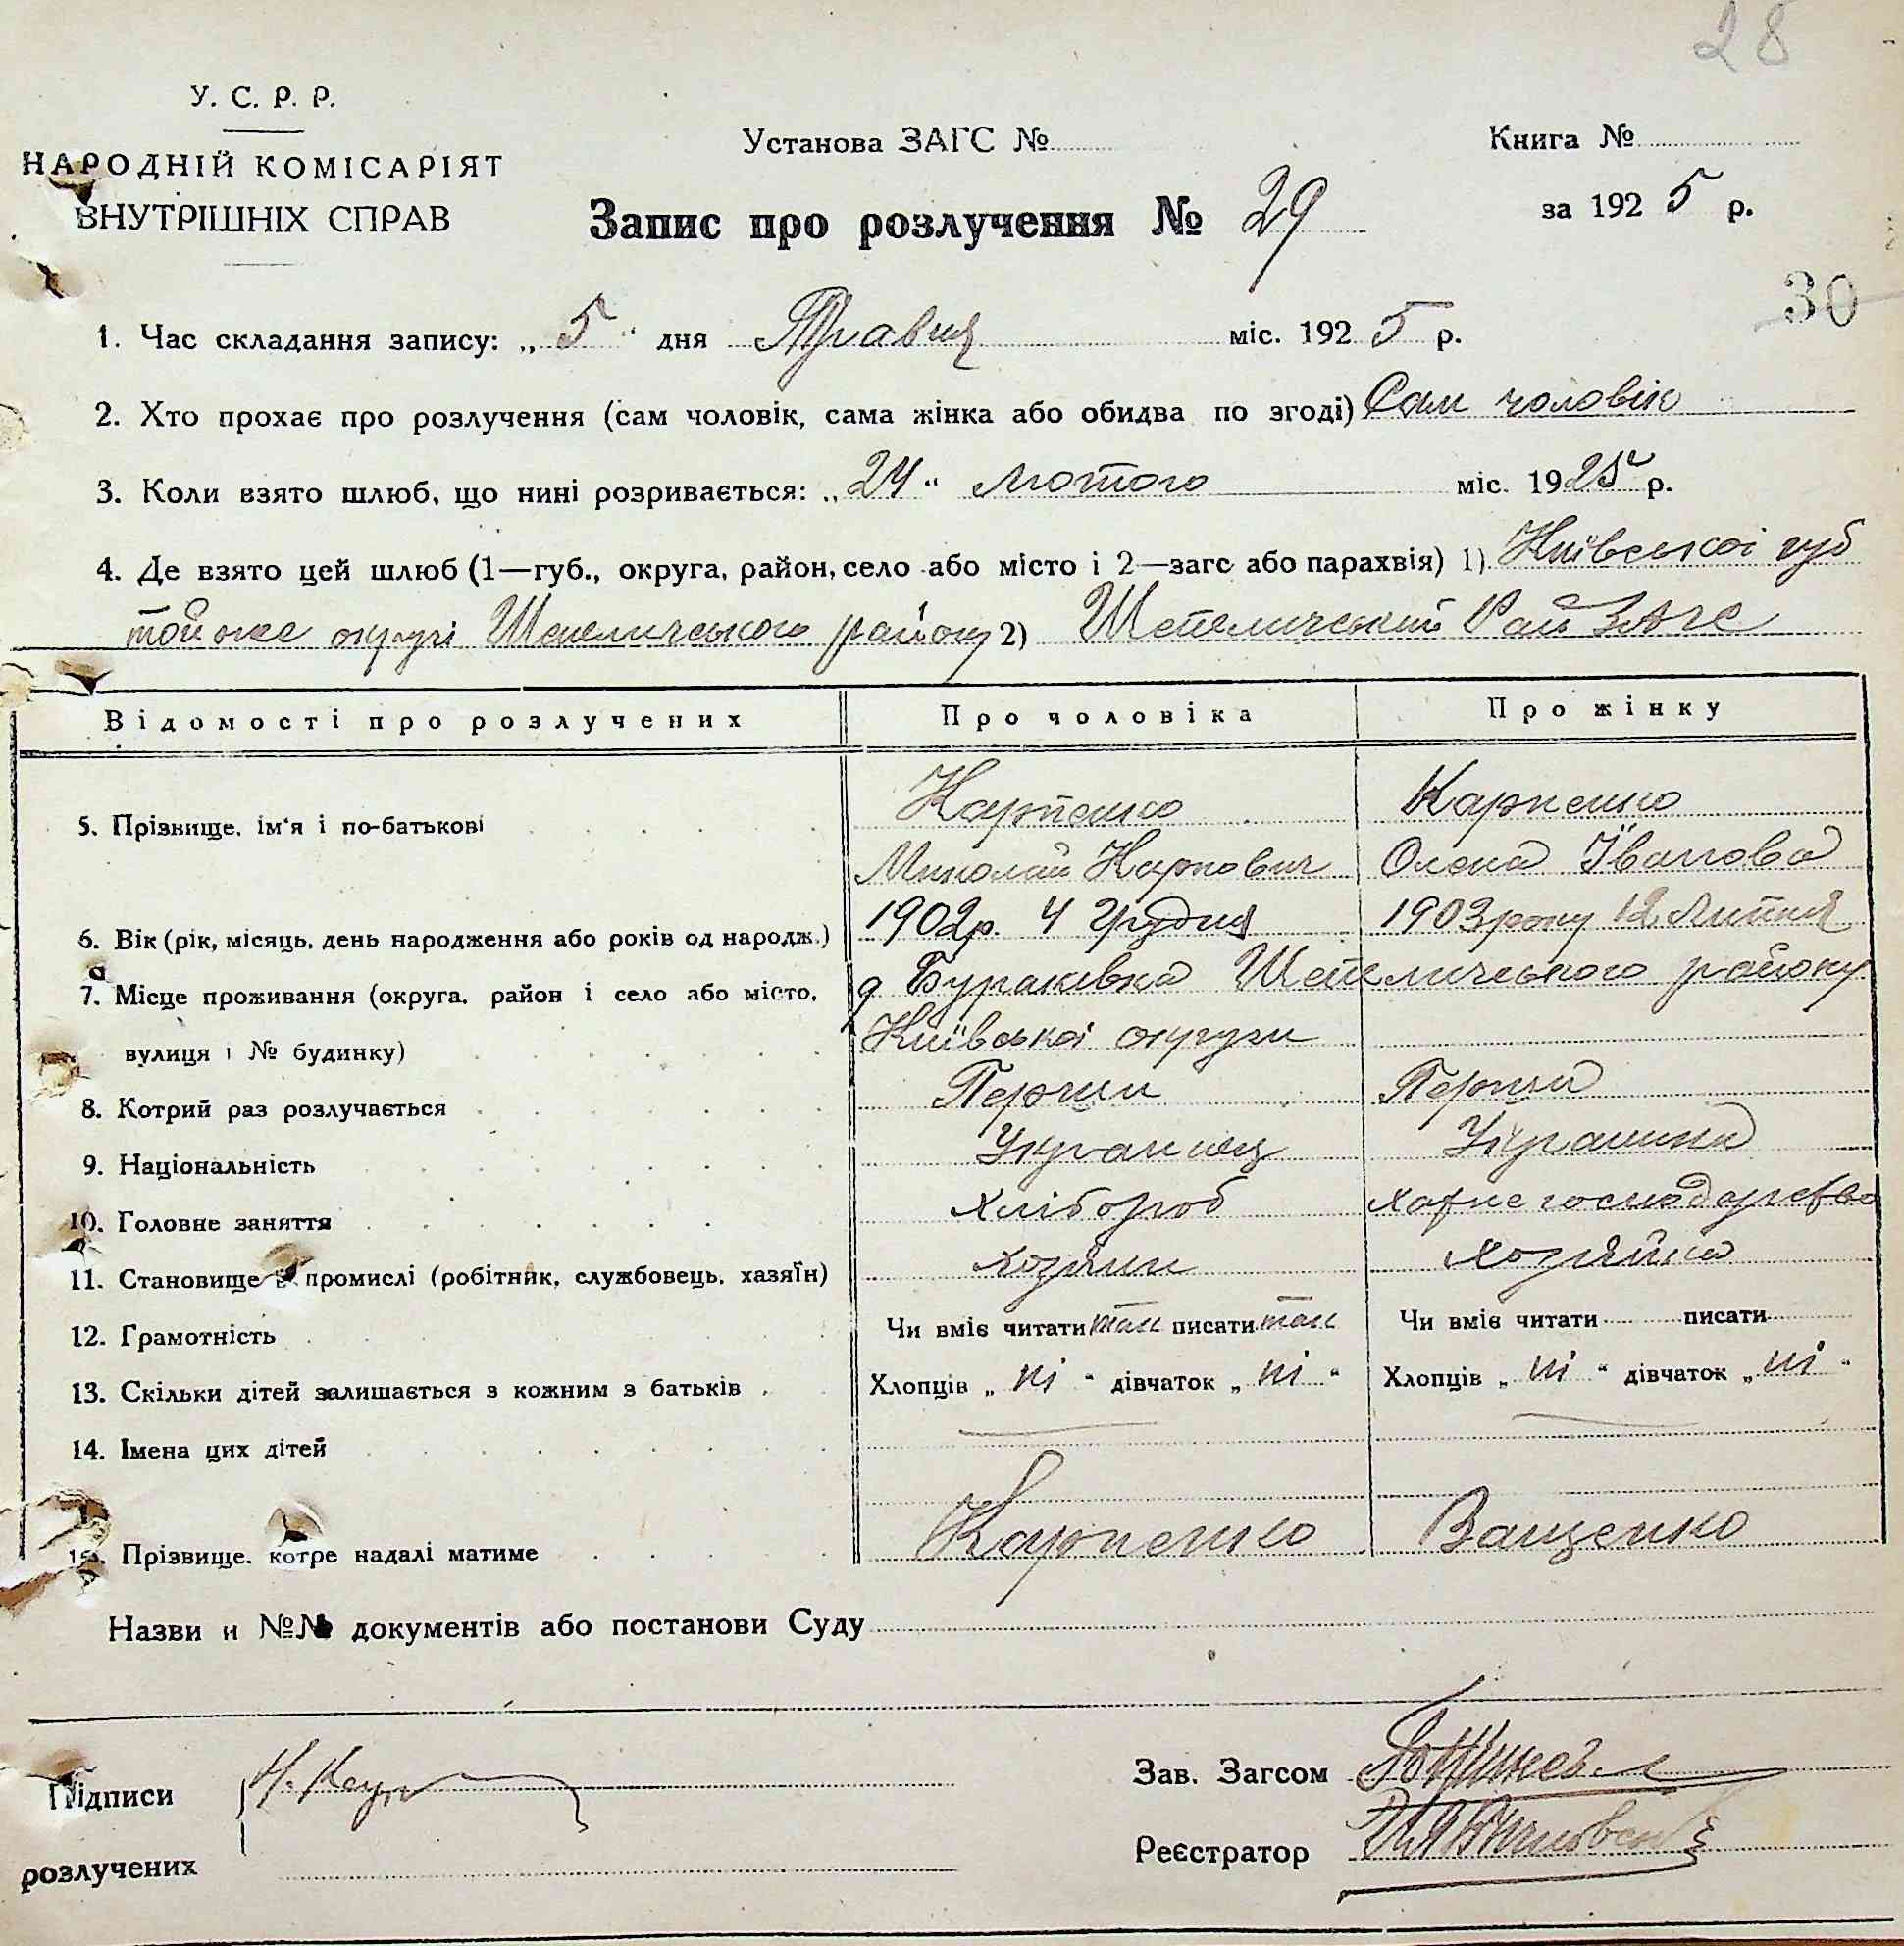 28
У. С. Р. Р.
НАРОДНІЙ КОМІСАРІЯТ
ВНУТРІШНІХ СПРАВ
Установа ЗАГС №
Книга №
за 1925 р.
Запис про розлучення № 29
30
1. Час складання запису: „5“ дня Травня міс. 1925 р.
2. Хто прохає про розлучення (сам чоловік, сама жінка або обидва по згоді) Сам чоловік
3. Коли взято шлюб, що нині розривається: „24“ лютого міс. 1925 р.
4. Де взято цей шлюб (1—губ., округа, район, село або місто і 2—загс або парахвія) 1) Київської губ
тої же округі Шепеличського району 2) Шепеличський Рай ЗАГС
Відомості про розлучених Про чоловіка Про жінку
5. Прізвище, ім'я і по-батькові Карпенко Карпенко
Миколай Карпович Олена Іванова
6. Вік (рік, місяць, день народження або років од народж.) 1902р. 4 Грудня 1903року 12 Липня
7. Місце проживання (округа, район і село або місто, д Бураківка Шепеличського району
вулиця і № будинку) Київської округи
8. Котрий раз розлучається Перший Перший
9. Національність Украинец Украинка
10. Головне заняття Хлібороб хатне господарство
11. Становище в промислі (робітник, службовець, хазяїн) хозяин хозяйка
12. Грамотність Чи вміє читати так писати так Чи вміє читати писати
13. Скільки дітей залишається з кожним з батьків Хлопців „ні“ дівчаток „ні“ Хлопців „ні“ дівчаток „ні“
14. Імена цих дітей
15. Прізвище, котре надалі матиме Карпенко Ващенко
Назви и №№ документів або постанови Суду
Підписи
розлучених
Зав. Загсом
Реєстратор